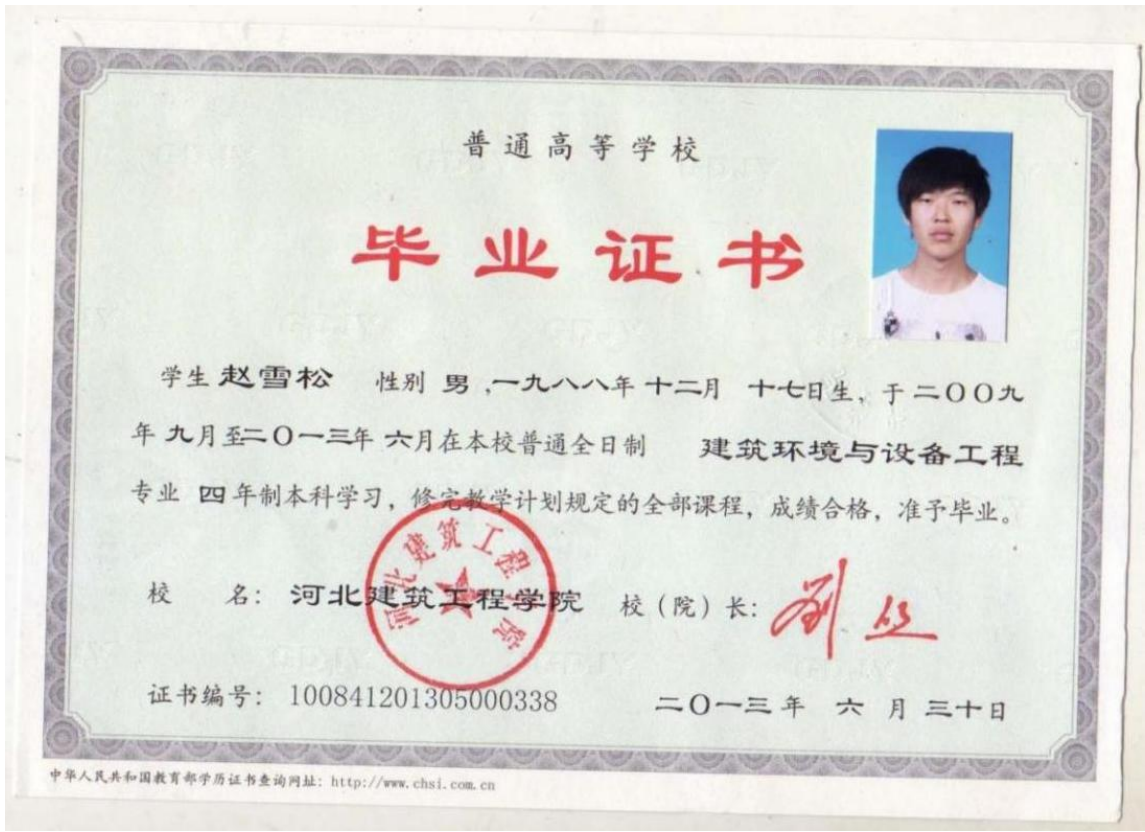 普通高等学校
毕业证书
学生 赵雪松 性别 男 ,一九八八年 十二月 十七日生, 于 二〇〇九
年 九月至二〇一三年 六月在本校普通全日制 建筑环境与设备工程
专业 四 年制本科学习, 修完教学计划规定的全部课程, 成绩合格, 准予毕业。
河北建筑工程学院
校 名: 河北建筑工程学院 校(院)长:
证书编号: 100841201305000338 二〇一三年 六 月 三十日
中华人民共和国教育部学历证书查询网址: http://www.chsi.com.cn